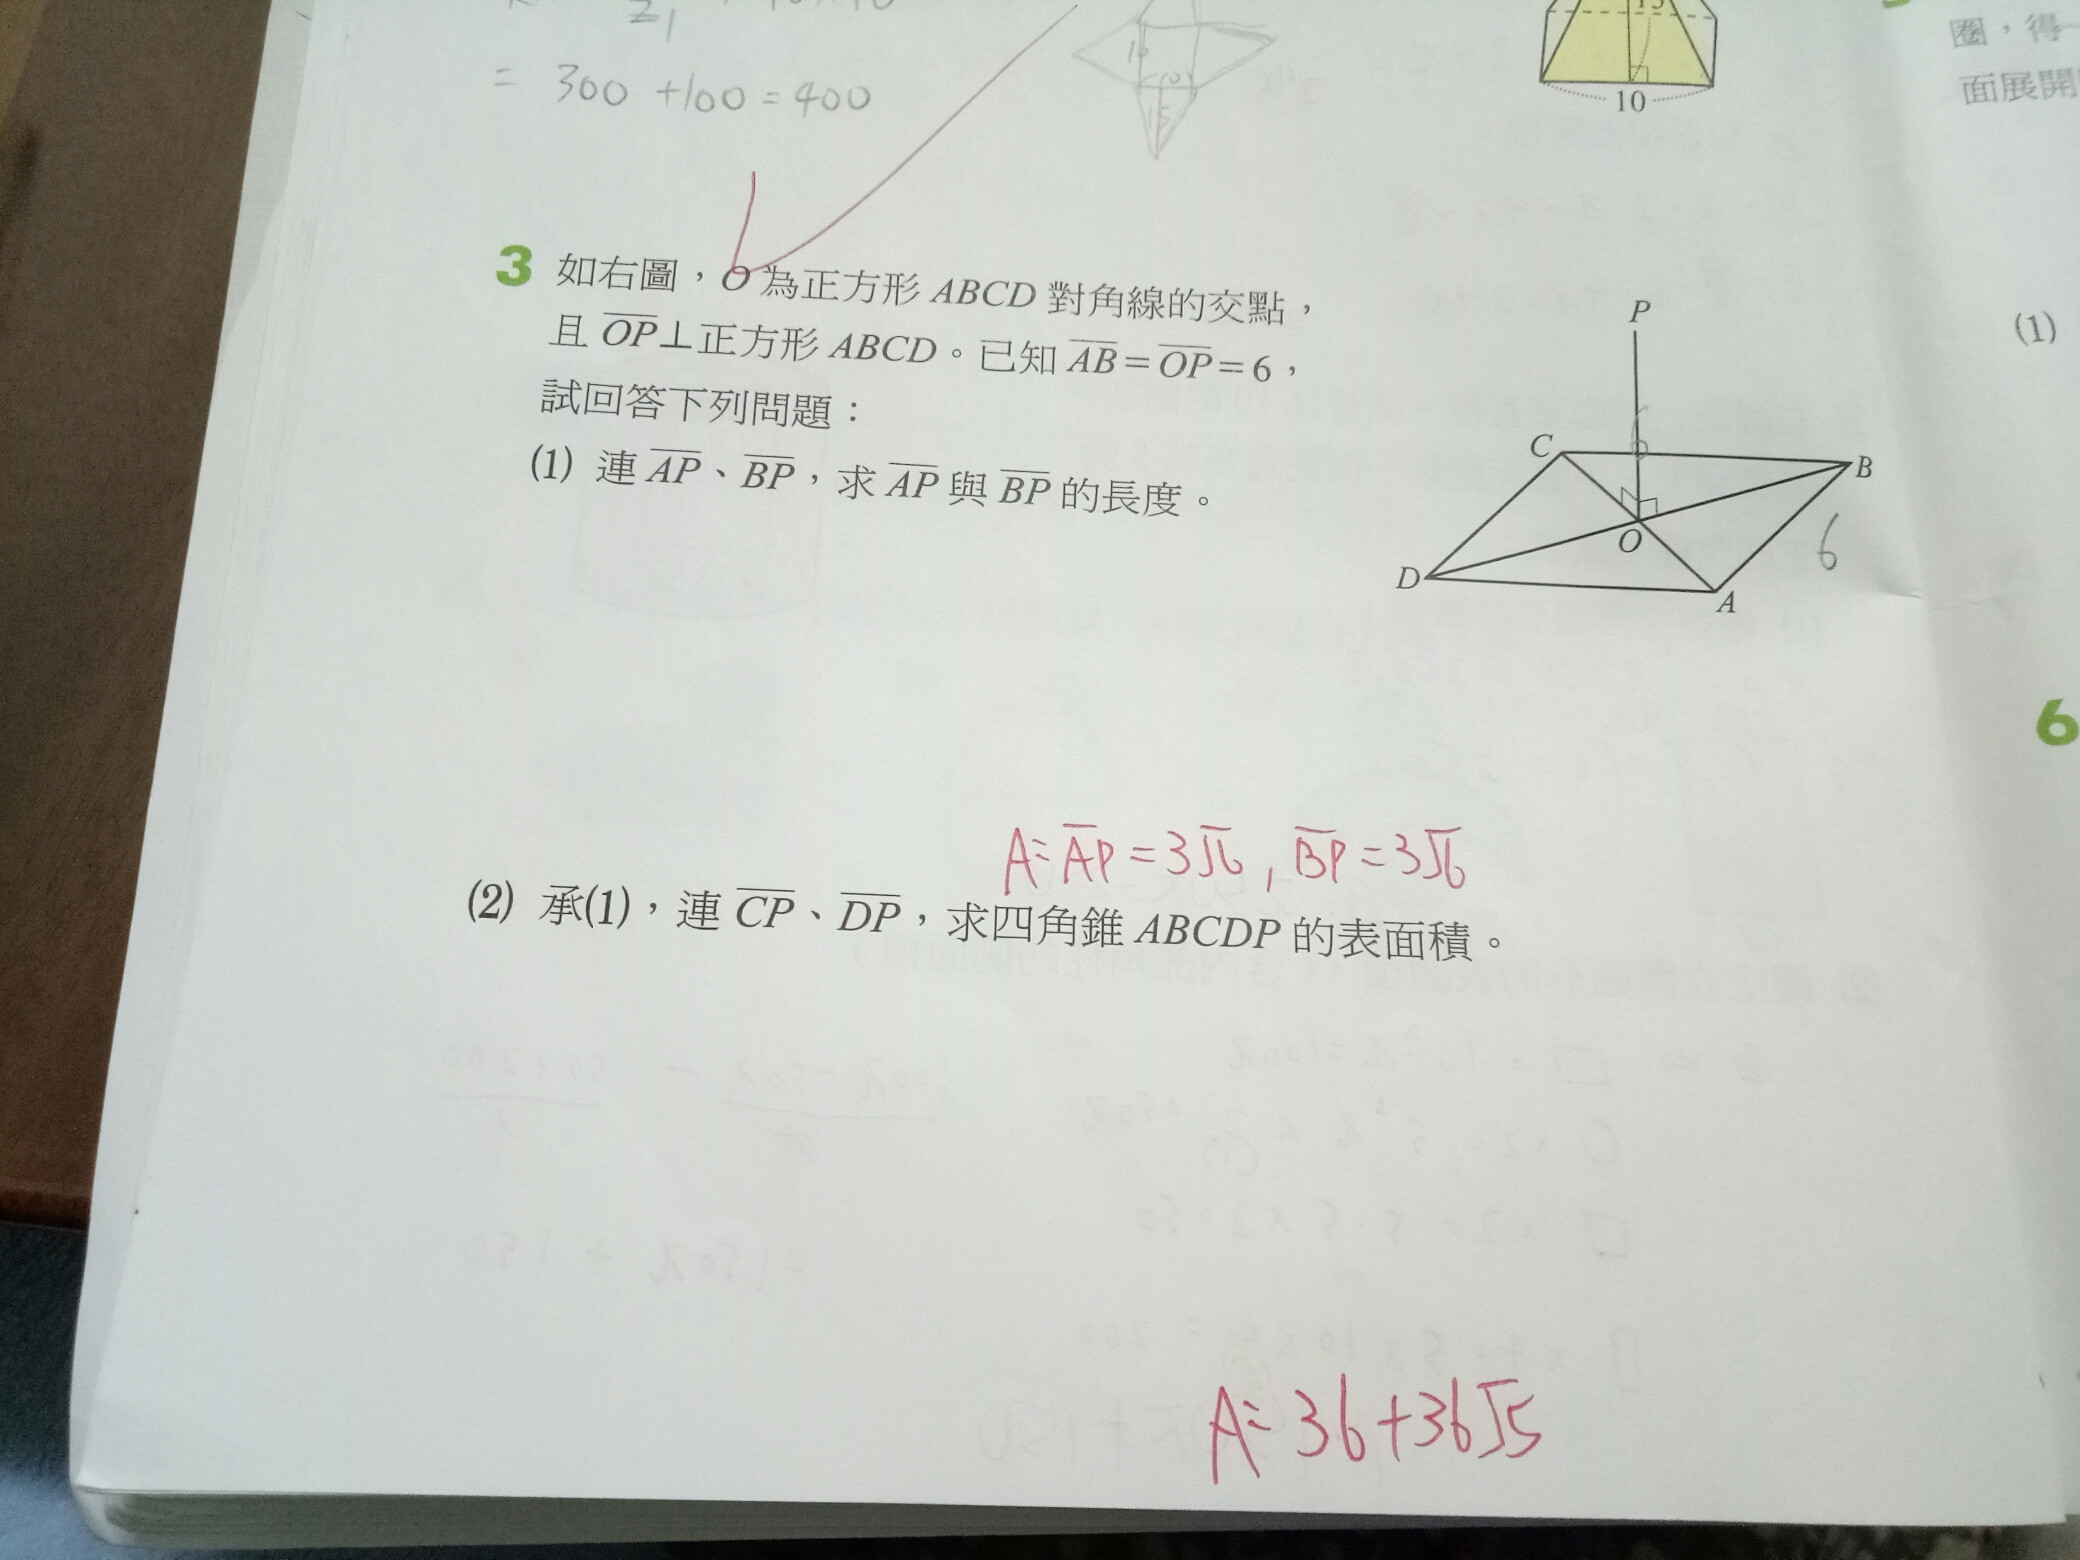 = 300 + 100 = 400
10
15
10
圈，得一
面展開
3 如右圖，O 為正方形 ABCD 對角線的交點，
且 OP⊥正方形 ABCD。已知 AB=OP=6，
試回答下列問題：
(1) 連 AP、BP，求 AP 與 BP 的長度。
P
C
B
O
D
A
6
(1)
6
A: AP = 3√6, BP = 3√6
(2) 承(1)，連 CP、DP，求四角錐 ABCDP 的表面積。
A: 36+36√5